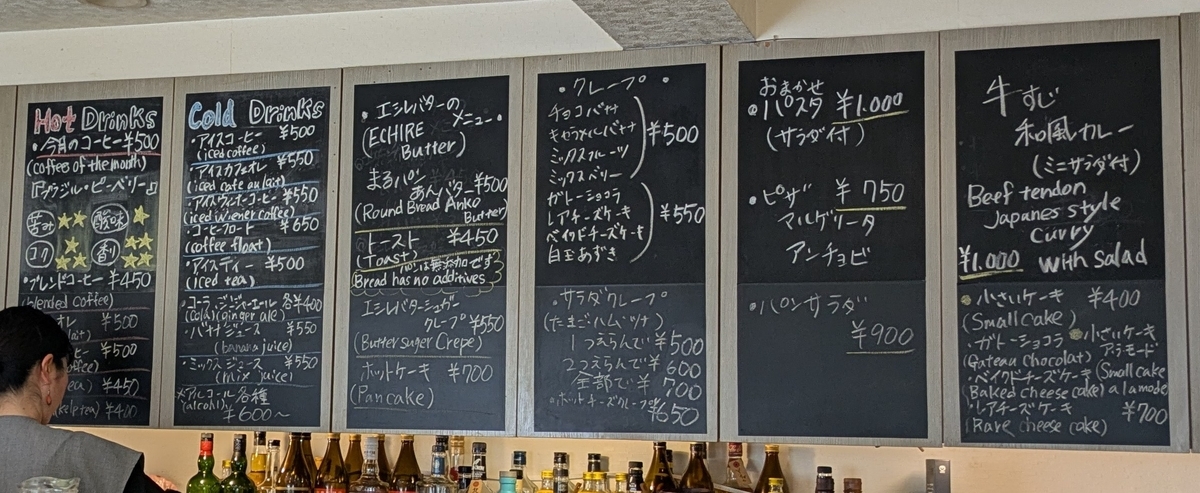 Hot Drinks
・今月のコーヒー ¥500
(coffees of the month)
ブラジル・ピーベリー
苦み ★★ 酸味 ★
コク ★★ 香り ★★★★
・ブレンドコーヒー ¥450
(blended coffee)
オレ ¥500
lait)
ヒー ¥500
offee)
¥450
tea)
(kelp tea) ¥400
Cold Drinks
・アイスコーヒー ¥500
(iced coffee)
・アイスカフェオレ ¥550
(iced cafe au lait)
・アイスウィンナーコーヒー ¥550
(iced wiener coffee)
・コーヒーフロート ¥650
(coffee float)
・アイスティー ¥500
(iced tea)
・コーラ・ジンジャーエール 各¥400
(cola)(ginger ale)
・バナナジュース ¥550
(banana juice)
・ミックスジュース ¥550
(mix juice)
*アルコール各種
(alcohol) ¥600〜
・エシレバターのメニュー・
(ECHIRE Butter)
まるパン
あんバター ¥500
(Round Bread Anko Butter)
・トースト ¥450
(Toast)
パンは無添加です
Bread has no additives
エシレバターシュガー
クレープ ¥550
(Butter suger Crepe)
ホットケーキ ¥700
(Pancake)
・クレープ・
チョコバナナ
キャラメルバナナ
ミックスフルーツ
ミックスベリー
¥500
ガトーショコラ
レアチーズケーキ
ベイクドチーズケーキ
白玉あずき
¥550
・サラダクレープ
(たまごハムツナ)
1つえらんで ¥500
2つえらんで ¥600
全部で ¥700
・ホットチーズクレープ ¥650
おまかせ
・パスタ ¥1.000
(サラダ付)
・ピザ ¥750
マルゲリータ
アンチョビ
・パンサラダ
¥900
牛すじ
和風カレー
(ミニサラダ付)
Beef tendon
Japanes style
Curry
¥1.000 with Salad
・小さいケーキ ¥400
(Small cake)
・ガトーショコラ
(Gateau chocolat)
・ベイクドチーズケーキ
(Baked cheese cake)
・レアチーズケーキ
(Rare cheese cake)
・小さいケーキ
アラモード
(Small cake
a la mode)
¥700